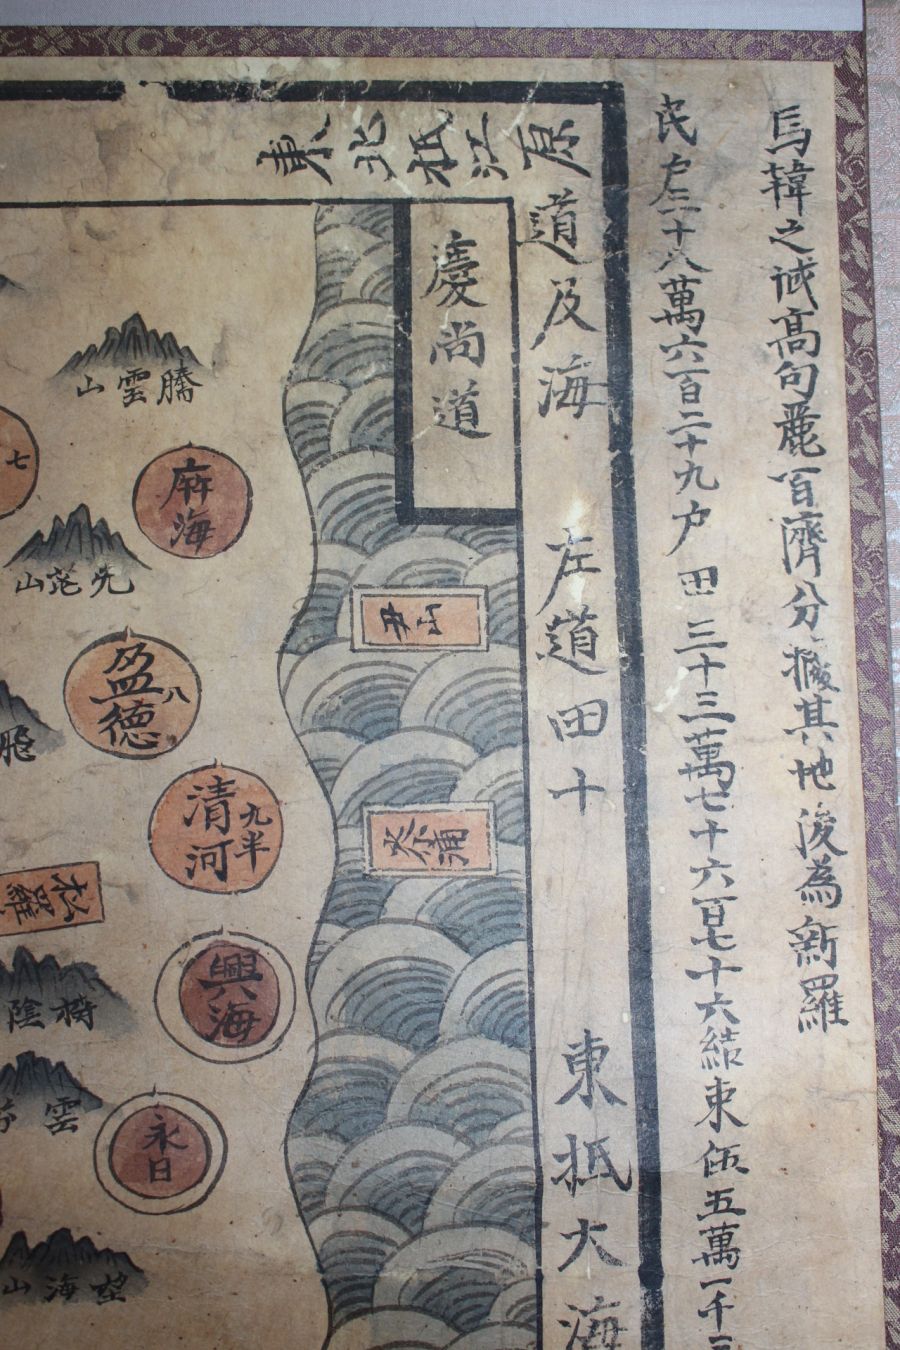 馬韓之域高句麗百濟分據其地後為新羅
民戶三十八萬六百二十九戶 田 三十三萬七十六百七十六結 束伍五萬一千
東北抵江原道及海 左道田十 東抵大海
慶尚道
騰雲山
七
麻海
山
盈德
八
丑山
清河
九半
松羅
興海
陰
雲
永日
望海山